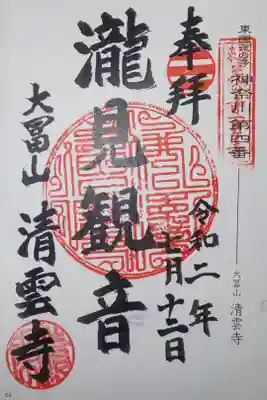 東国花の寺
神奈川第四番
大冨山 清雲寺
奉拝
令和二年
七月十二日
瀧見観音
大冨山 清雲寺